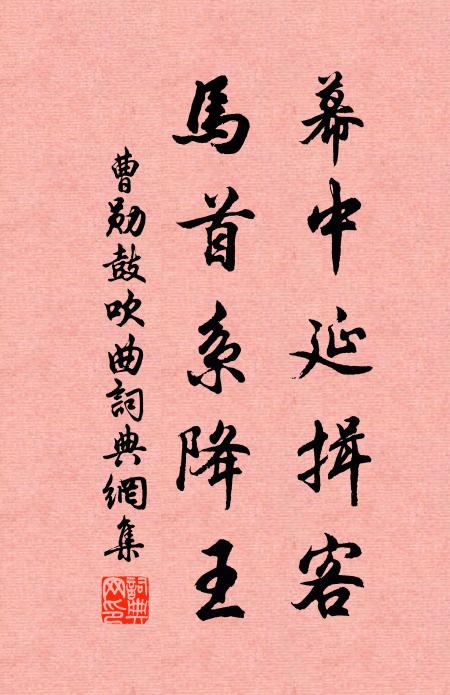 幕中延揖客
馬首系降王
曹勛鼓吹曲詞典網集
詞典網印